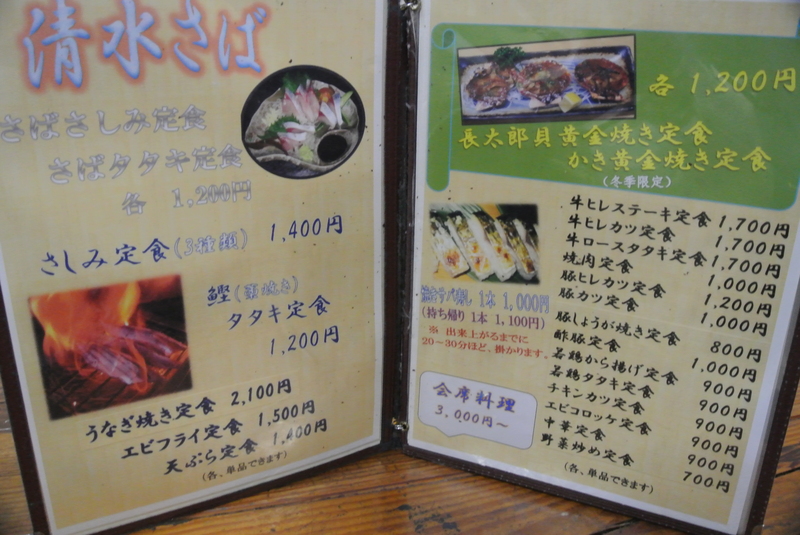 清水さば
さばさしみ定食
さばタタキ定食
各 1,200円
さしみ定食(3種類) 1,400円
鰹(藁焼き)
タタキ定食
1,200円
うなぎ焼き定食 2,100円
エビフライ定食 1,500円
天ぷら定食 1,400円
(各、単品できます)
各 1,200円
長太郎貝黄金焼き定食
かき黄金焼き定食
(冬季限定)
牛ヒレステーキ定食 1,700円
牛ヒレカツ定食 1,700円
牛ロースタタキ定食 1,700円
焼肉定食 1,000円
豚ヒレカツ定食 1,200円
豚カツ定食 1,000円
豚しょうが焼き定食 800円
酢豚定食 1,000円
若鶏から揚げ定食 900円
若鶏タタキ定食 900円
チキンカツ定食 900円
エビコロッケ定食 900円
中華定食 900円
野菜炒め定食 700円
(各、単品できます)
1本 1,000円
(持ち帰り 1本 1,100円)
※ 出来上がるまでに
20～30分ほど、掛かります。
会席料理
3,000円～